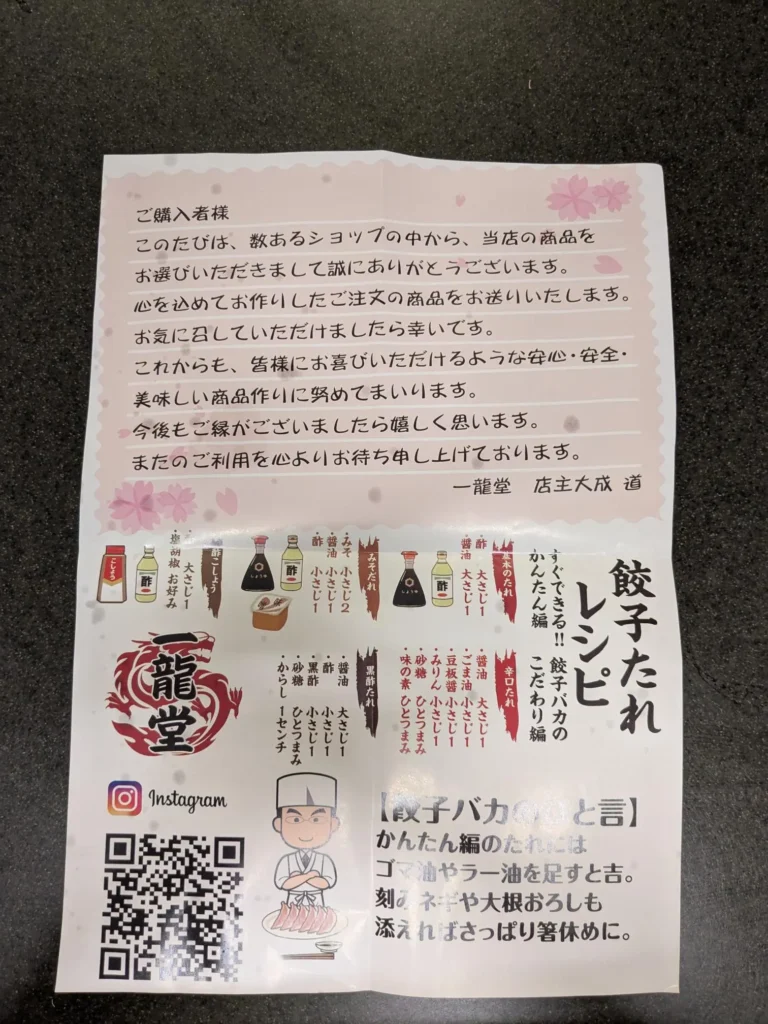 ご購入者様
このたびは、数あるショップの中から、当店の商品を
お選びいただきまして誠にありがとうございます。
心を込めてお作りしたご注文の商品をお送りいたします。
お気に召していただけましたら幸いです。
これからも、皆様にお喜びいただけるような安心・安全・
美味しい商品作りに努めてまいります。
今後もご縁がございましたら嬉しく思います。
またのご利用を心よりお待ち申し上げております。
一龍堂 店主大成 道
餃子たれ
レシピ
すぐできる!! 餃子バカの
かんたん編 こだわり編
のたれ
・酢 大さじ1
・醤油 大さじ1
みそだれ
・みそ 小さじ2
・醤油 小さじ1
・酢 小さじ1
しょうゆ
酢
酢こしょう
大さじ1
胡椒 お好み
酢
こしょう
しょうゆ
酢
辛口たれ
・醤油 大さじ1
・ごま油 小さじ1
・豆板醤 小さじ1
・みりん 小さじ1
・砂糖 ひとつまみ
・味の素 ひとつまみ
黒酢たれ
・醤油 大さじ1
・酢 小さじ1
・黒酢 小さじ1
・砂糖 ひとつまみ
・からし 1センチ
一龍堂
Instagram
【餃子バカの と言】
かんたん編のたれには
ゴマ油やラー油を足すと吉。
刻みネギや大根おろしも
添えればさっぱり箸休めに。